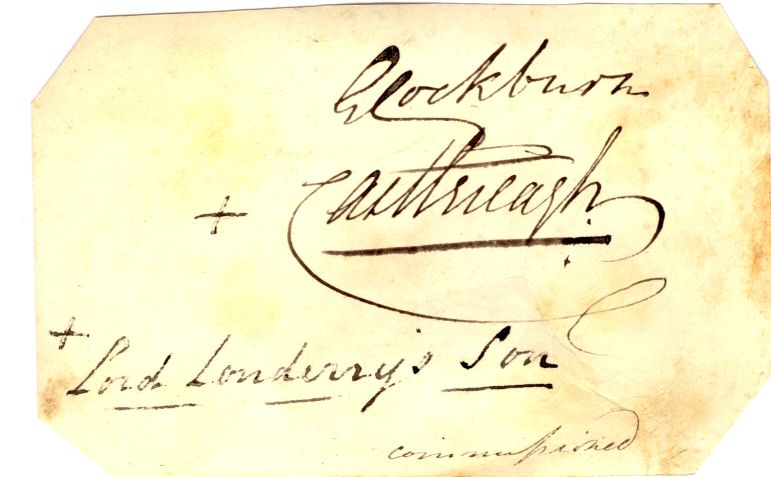 GCockburn
+ Castlereagh
+ Lord Londerry's Son
commissioned